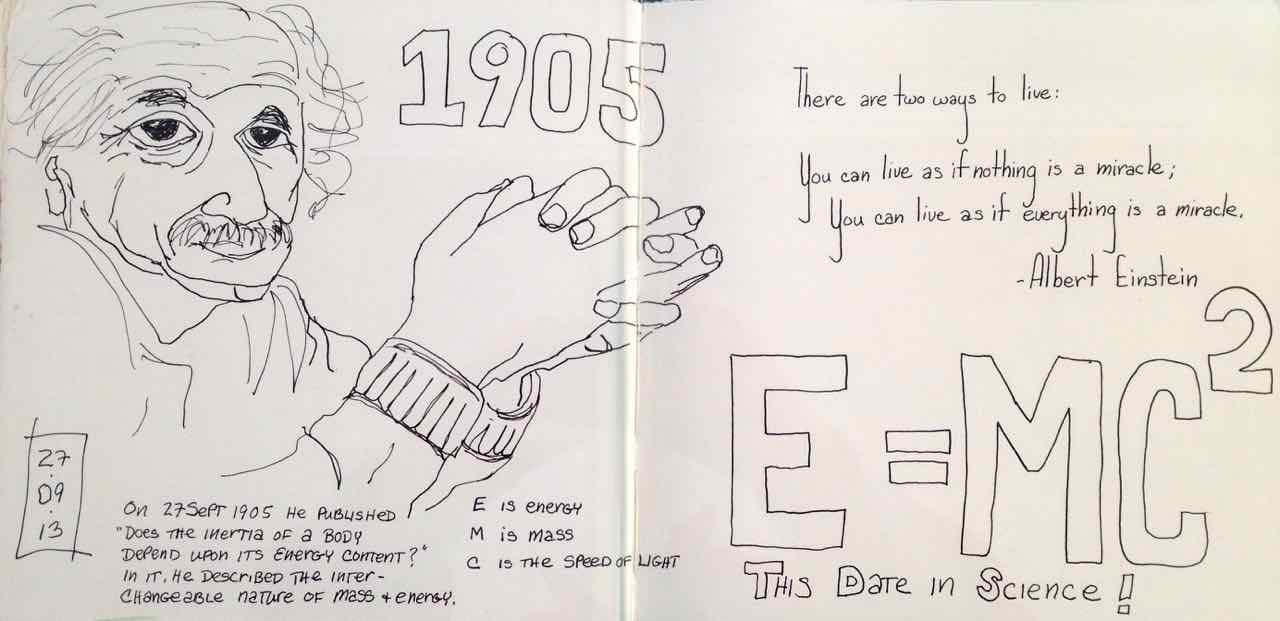 1905
27
.
09
.
13
On 27 Sept 1905 He Published
"Does the inertia of a Body
Depend upon its Energy Content?"
In it, He Described the inter-
changeable nature of mass + energy.
E is energy
M is mass
C is the speed of light
There are two ways to live:
You can live as if nothing is a miracle;
You can live as if everything is a miracle.
-Albert Einstein
E=MC²
This Date in Science!